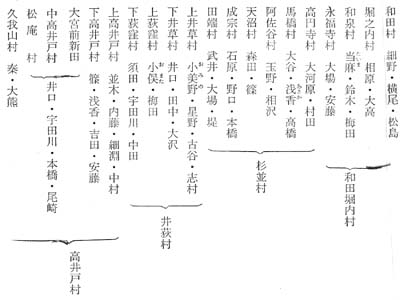 和田村 細野・横尾・松島
堀之内村 相原・大高
和泉村 当麻・鈴木・梅田
永福寺村 大場・安藤
和田堀内村
高円寺村 大河原・村田
馬橋村 大谷・浅香・高橋
阿佐谷村 玉野・相沢
天沼村 森田・篠
成宗村 石原・野口・本橋
田端村 武井・大場・堤
杉並村
上井草村 小美野・星野・古谷・志村
下井草村 井口・田中・大沢
上荻窪村 小俣・梅田
下荻窪村 須田・宇田川・中田
井荻村
上高井戸村 並木・内藤・細淵・中村
下高井戸村 篠・浅香・吉田・安藤
大宮前新田
中高井戸村
松庵村
井口・宇田川・本橋・尾崎
久我山村 秦・大熊
高井戸村